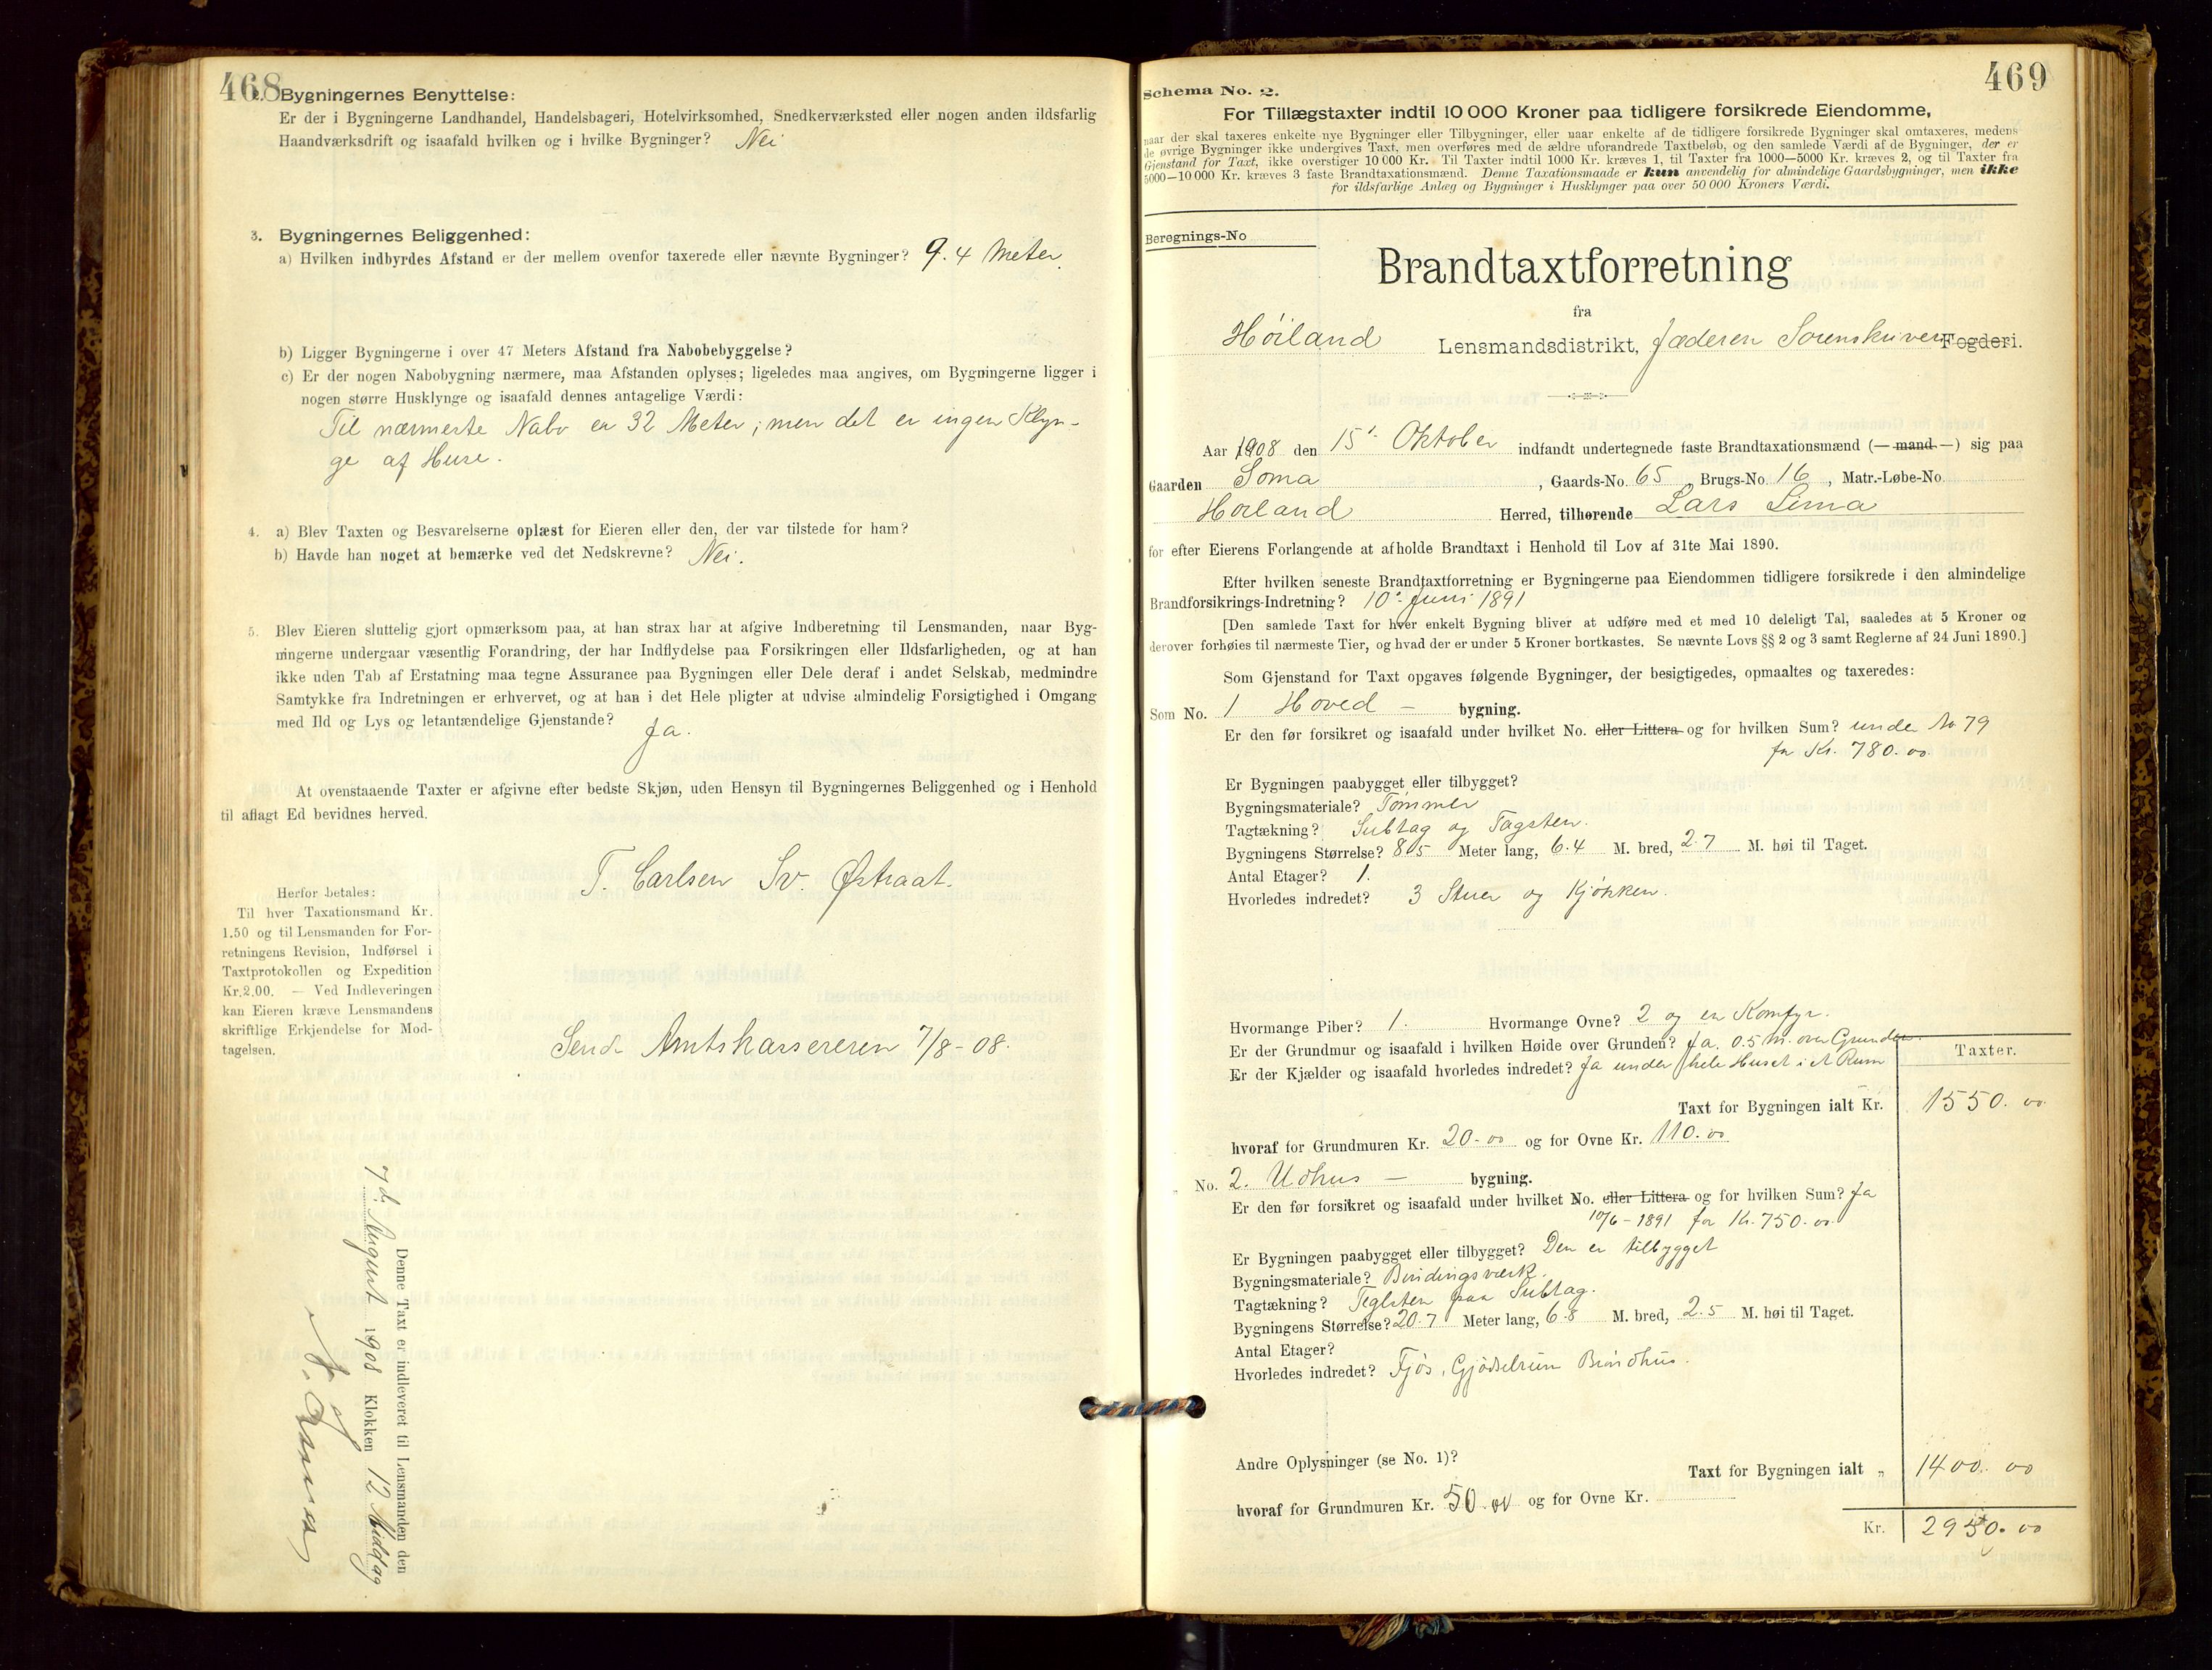 468
2. Bygningernes Benyttelse:
Er der i Bygningerne Landhandel, Handelsbageri, Hotelvirksomhed, Snedkerværksted eller nogen anden ildsfarlig
Haandværksdrift og isaafald hvilken og i hvilke Bygninger? Nei
3. Bygningernes Beliggenhed:
a) Hvilken indbyrdes Afstand er der mellem ovenfor taxerede eller nævnte Bygninger? 9.4 Meter.
b) Ligger Bygningerne i over 47 Meters Afstand fra Nabobebyggelse?
c) Er der nogen Nabobygning nærmere, maa Afstanden oplyses; ligeledes maa angives, om Bygningerne ligger i
nogen større Husklynge og isaafald dennes antagelige Værdi:
Til nærmeste Nabo er 32 Meter; men det er ingen Klyn-
ge af Huse.
4. a) Blev Taxten og Besvarelserne oplæst for Eieren eller den, der var tilstede for ham?
b) Havde han noget at bemærke ved det Nedskrevne? Nei.
5. Blev Eieren sluttelig gjort opmærksom paa, at han strax har at afgive Indberetning til Lensmanden, naar Byg-
ningerne undergaar væsentlig Forandring, der har Indflydelse paa Forsikringen eller Ildsfarligheden, og at han
ikke uden Tab af Erstatning maa tegne Assurance paa Bygningen eller Dele deraf i andet Selskab, medmindre
Samtykke fra Indretningen er erhvervet, og at han i det Hele pligter at udvise almindelig Forsigtighed i Omgang
med Ild og Lys og letantændelige Gjenstande? Ja.
At ovenstaaende Taxter er afgivne efter bedste Skjøn, uden Hensyn til Bygningernes Beliggenhed og i Henhold
til aflagt Ed bevidnes herved.
T. Carlsen Sv. Østraat.
Herfor betales:
Til hver Taxationsmand Kr.
1.50 og til Lensmanden for For-
retningens Revision, Indførsel i
Taxtprotokollen og Expedition
Kr. 2.00. — Ved Indleveringen
kan Eieren kræve Lensmandens
skriftlige Erkjendelse for Mod-
tagelsen.
Send Amtskassereren 7/8-08.
Denne Taxt er indleveret til Lensmanden den
7d August 1908 Klokken 12 Middag
469
Schema No. 2.
For Tillægstaxter indtil 10 000 Kroner paa tidligere forsikrede Eiendomme,
naar der skal taxeres enkelte nye Bygninger eller Tilbygninger, eller naar enkelte af de tidligere forsikrede Bygninger skal omtaxeres, medens
de øvrige Bygninger ikke undergives Taxt, men overføres med de ældre uforandrede Taxtbeløb, og den samlede Værdi af de Bygninger, der er
Gjenstand for Taxt, ikke overstiger 10 000 Kr. Til Taxter indtil 1000 Kr. kræves 1, til Taxter fra 1000—5000 Kr. kræves 2, og til Taxter fra
5000—10 000 Kr. kræves 3 faste Brandtaxationsmænd. Denne Taxationsmaade er kun anvendelig for almindelige Gaardsbygninger, men ikke
for ildsfarlige Anlæg og Bygninger i Husklynger paa over 50 000 Kroners Værdi.
Beregnings-No
Brandtaxtforretning
fra
Høiland Lensmandsdistrikt, Jæderen Sorenskriveri Fogderi.
Aar 1908 den 15' Oktober indfandt undertegnede faste Brandtaxationsmænd (—mand—) sig paa
Gaarden Soma, Gaards-No. 65, Brugs-No. 16, Matr.-Løbe-No.
Høiland Herred, tilhørende Lars Lima
for efter Eierens Forlangende at afholde Brandtaxt i Henhold til Lov af 31te Mai 1890.
Efter hvilken seneste Brandtaxtforretning er Bygningerne paa Eiendommen tidligere forsikrede i den almindelige
Brandforsikrings-Indretning? 10' Juni 1891
[Den samlede Taxt for hver enkelt Bygning bliver at udføre med et med 10 deleligt Tal, saaledes at 5 Kroner og
derover forhøies til nærmeste Tier, og hvad der er under 5 Kroner bortkastes. Se nævnte Lovs §§ 2 og 3 samt Reglerne af 24 Juni 1890.]
Som Gjenstand for Taxt opgaves følgende Bygninger, der besigtigedes, opmaaltes og taxeredes:
Som No. 1 Hoved — bygning.
Er den før forsikret og isaafald under hvilket No. eller Littera og for hvilken Sum? under No 79
for Kr. 780.00
Er Bygningen paabygget eller tilbygget?
Bygningsmateriale? Tømmer
Tagtækning? Subtag og Tagsten.
Bygningens Størrelse? 8.5 Meter lang, 6.4 M. bred, 2.7 M. høi til Taget.
Antal Etager? 1.
Hvorledes indredet? 3 Stuer og Kjøkken.
Hvormange Piber? 1. Hvormange Ovne? 2 og en Komfyr.
Er der Grundmur og isaafald i hvilken Høide over Grunden? Ja. 0.5 M. over Grunden.
Er der Kjælder og isaafald hvorledes indredet? Ja under hele Huset i et Rum
Taxter.
Taxt for Bygningen ialt Kr. 1550.00
hvoraf for Grundmuren Kr. 20.00 og for Ovne Kr. 110.00
No. 2. Udhus — bygning.
Er den før forsikret og isaafald under hvilket No. eller Littera og for hvilken Sum? Ja
10/6-1891 for Kr. 750.00.
Er Bygningen paabygget eller tilbygget? Den er tilbygget
Bygningsmateriale? Bindingsværk.
Tagtækning? Teglsten paa Subtag.
Bygningens Størrelse? 20.7 Meter lang, 6.8 M. bred, 2.5 M. høi til Taget.
Antal Etager?
Hvorledes indredet? Fjøs, Gjødselrum Brøndhus.
Andre Oplysninger (se No. 1)?
Taxt for Bygningen ialt „ 1400.00
hvoraf for Grundmuren Kr. 50.00 og for Ovne Kr.
Kr. 2950.00